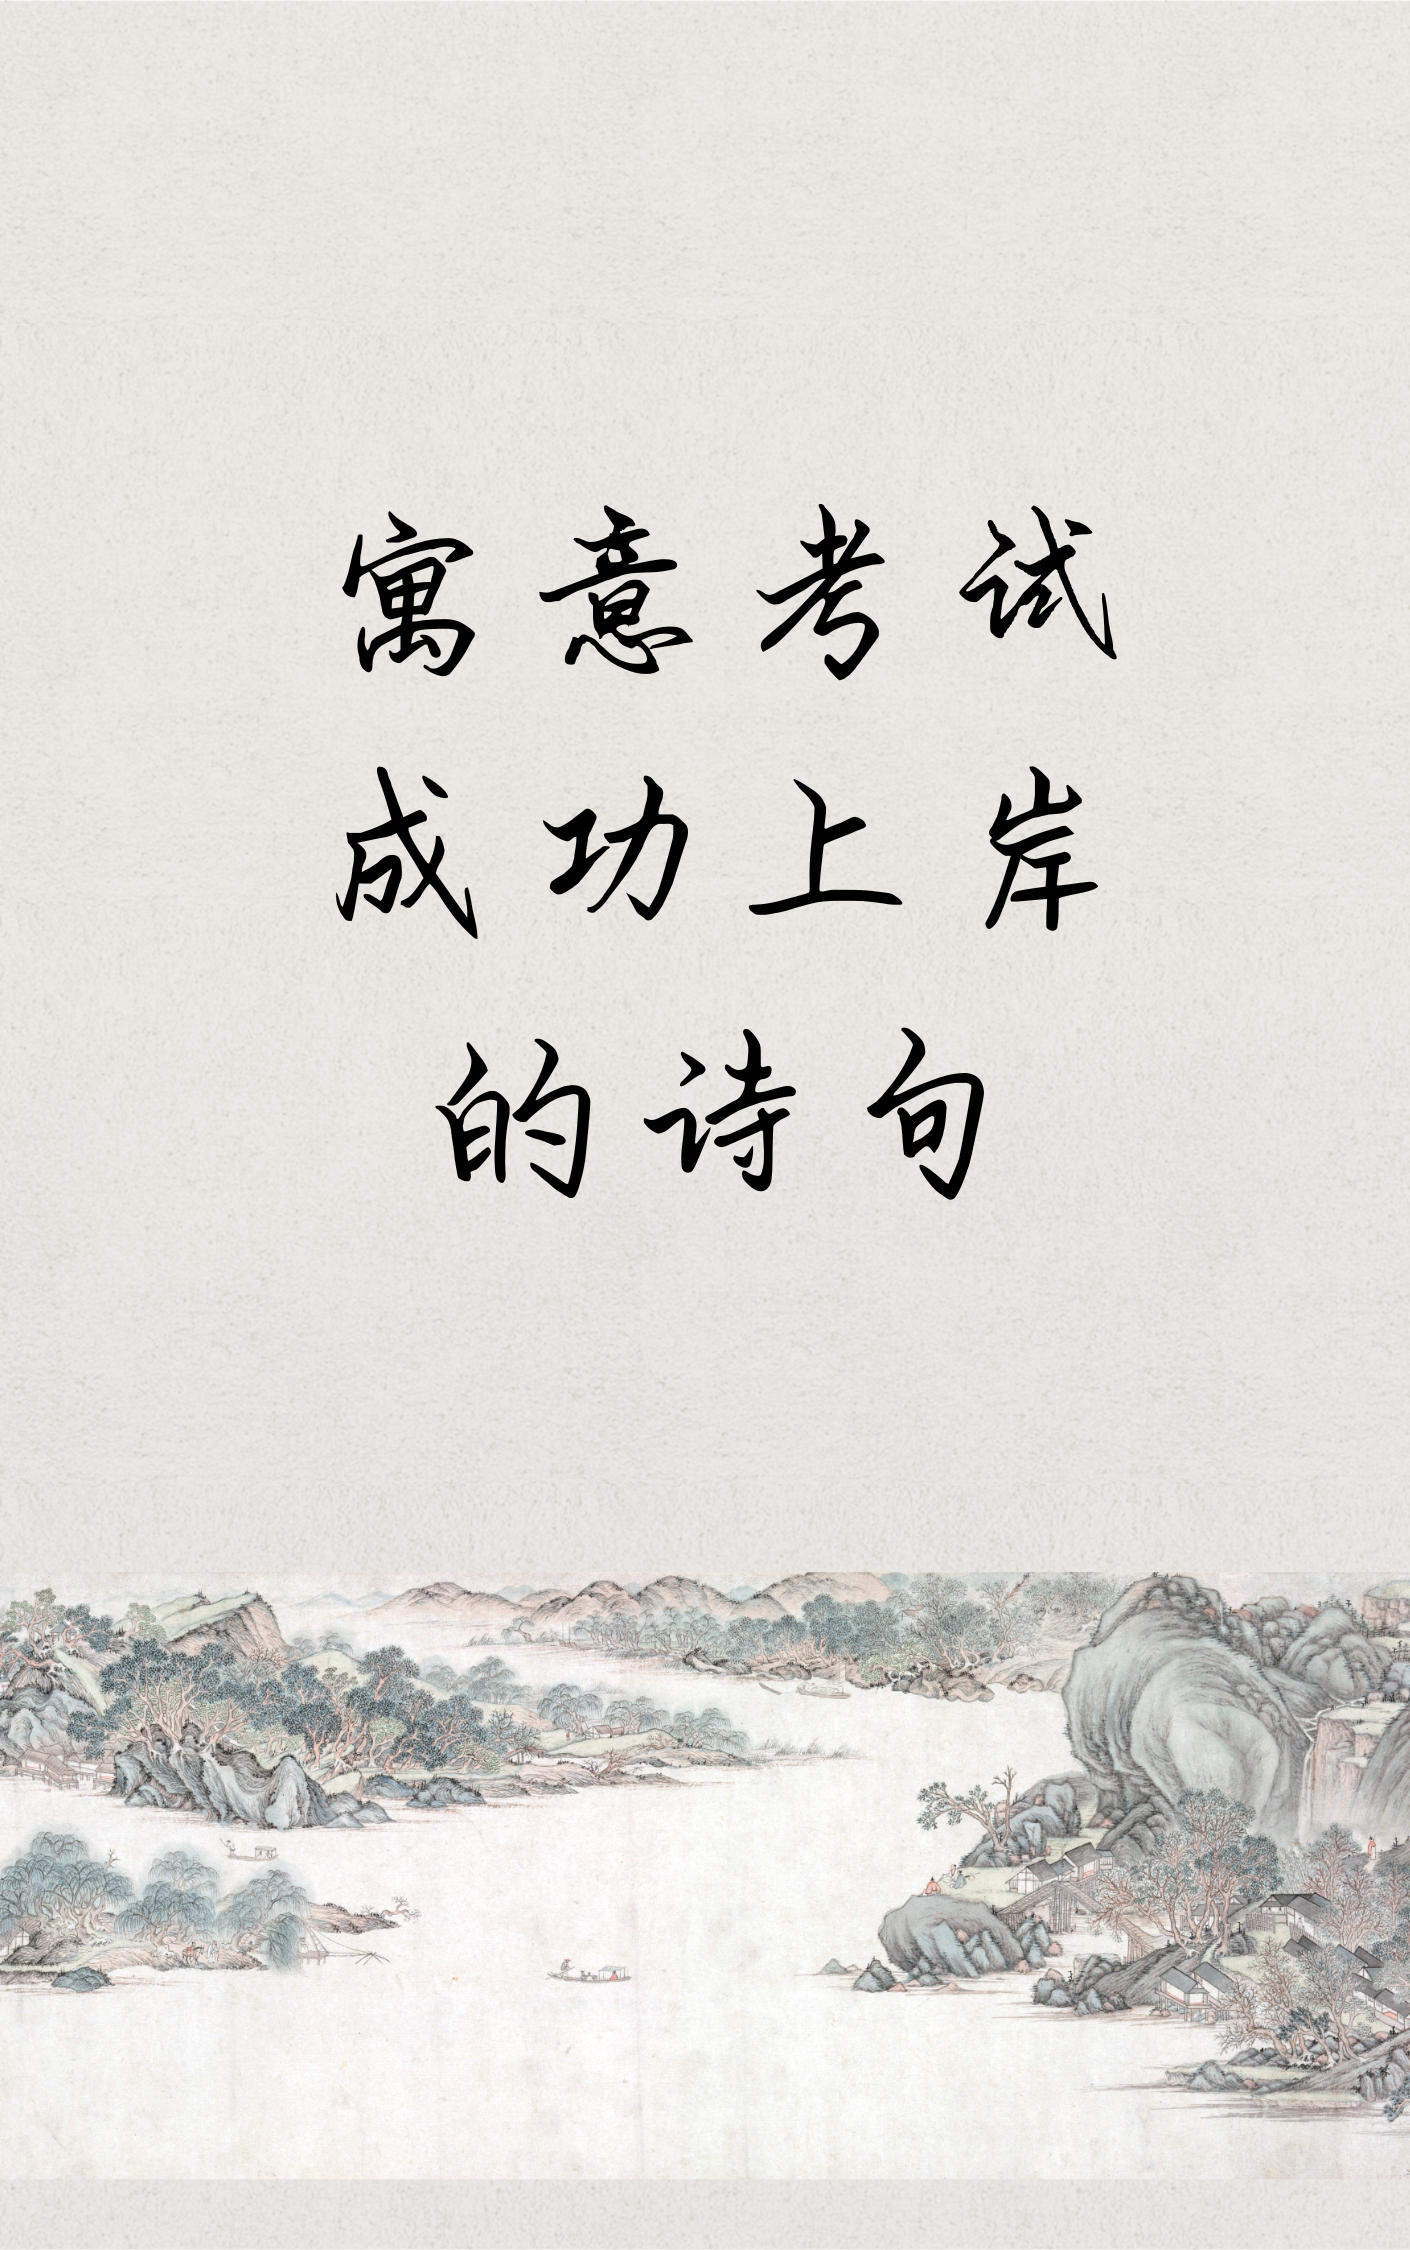 寓意考试
成功上岸
的诗句